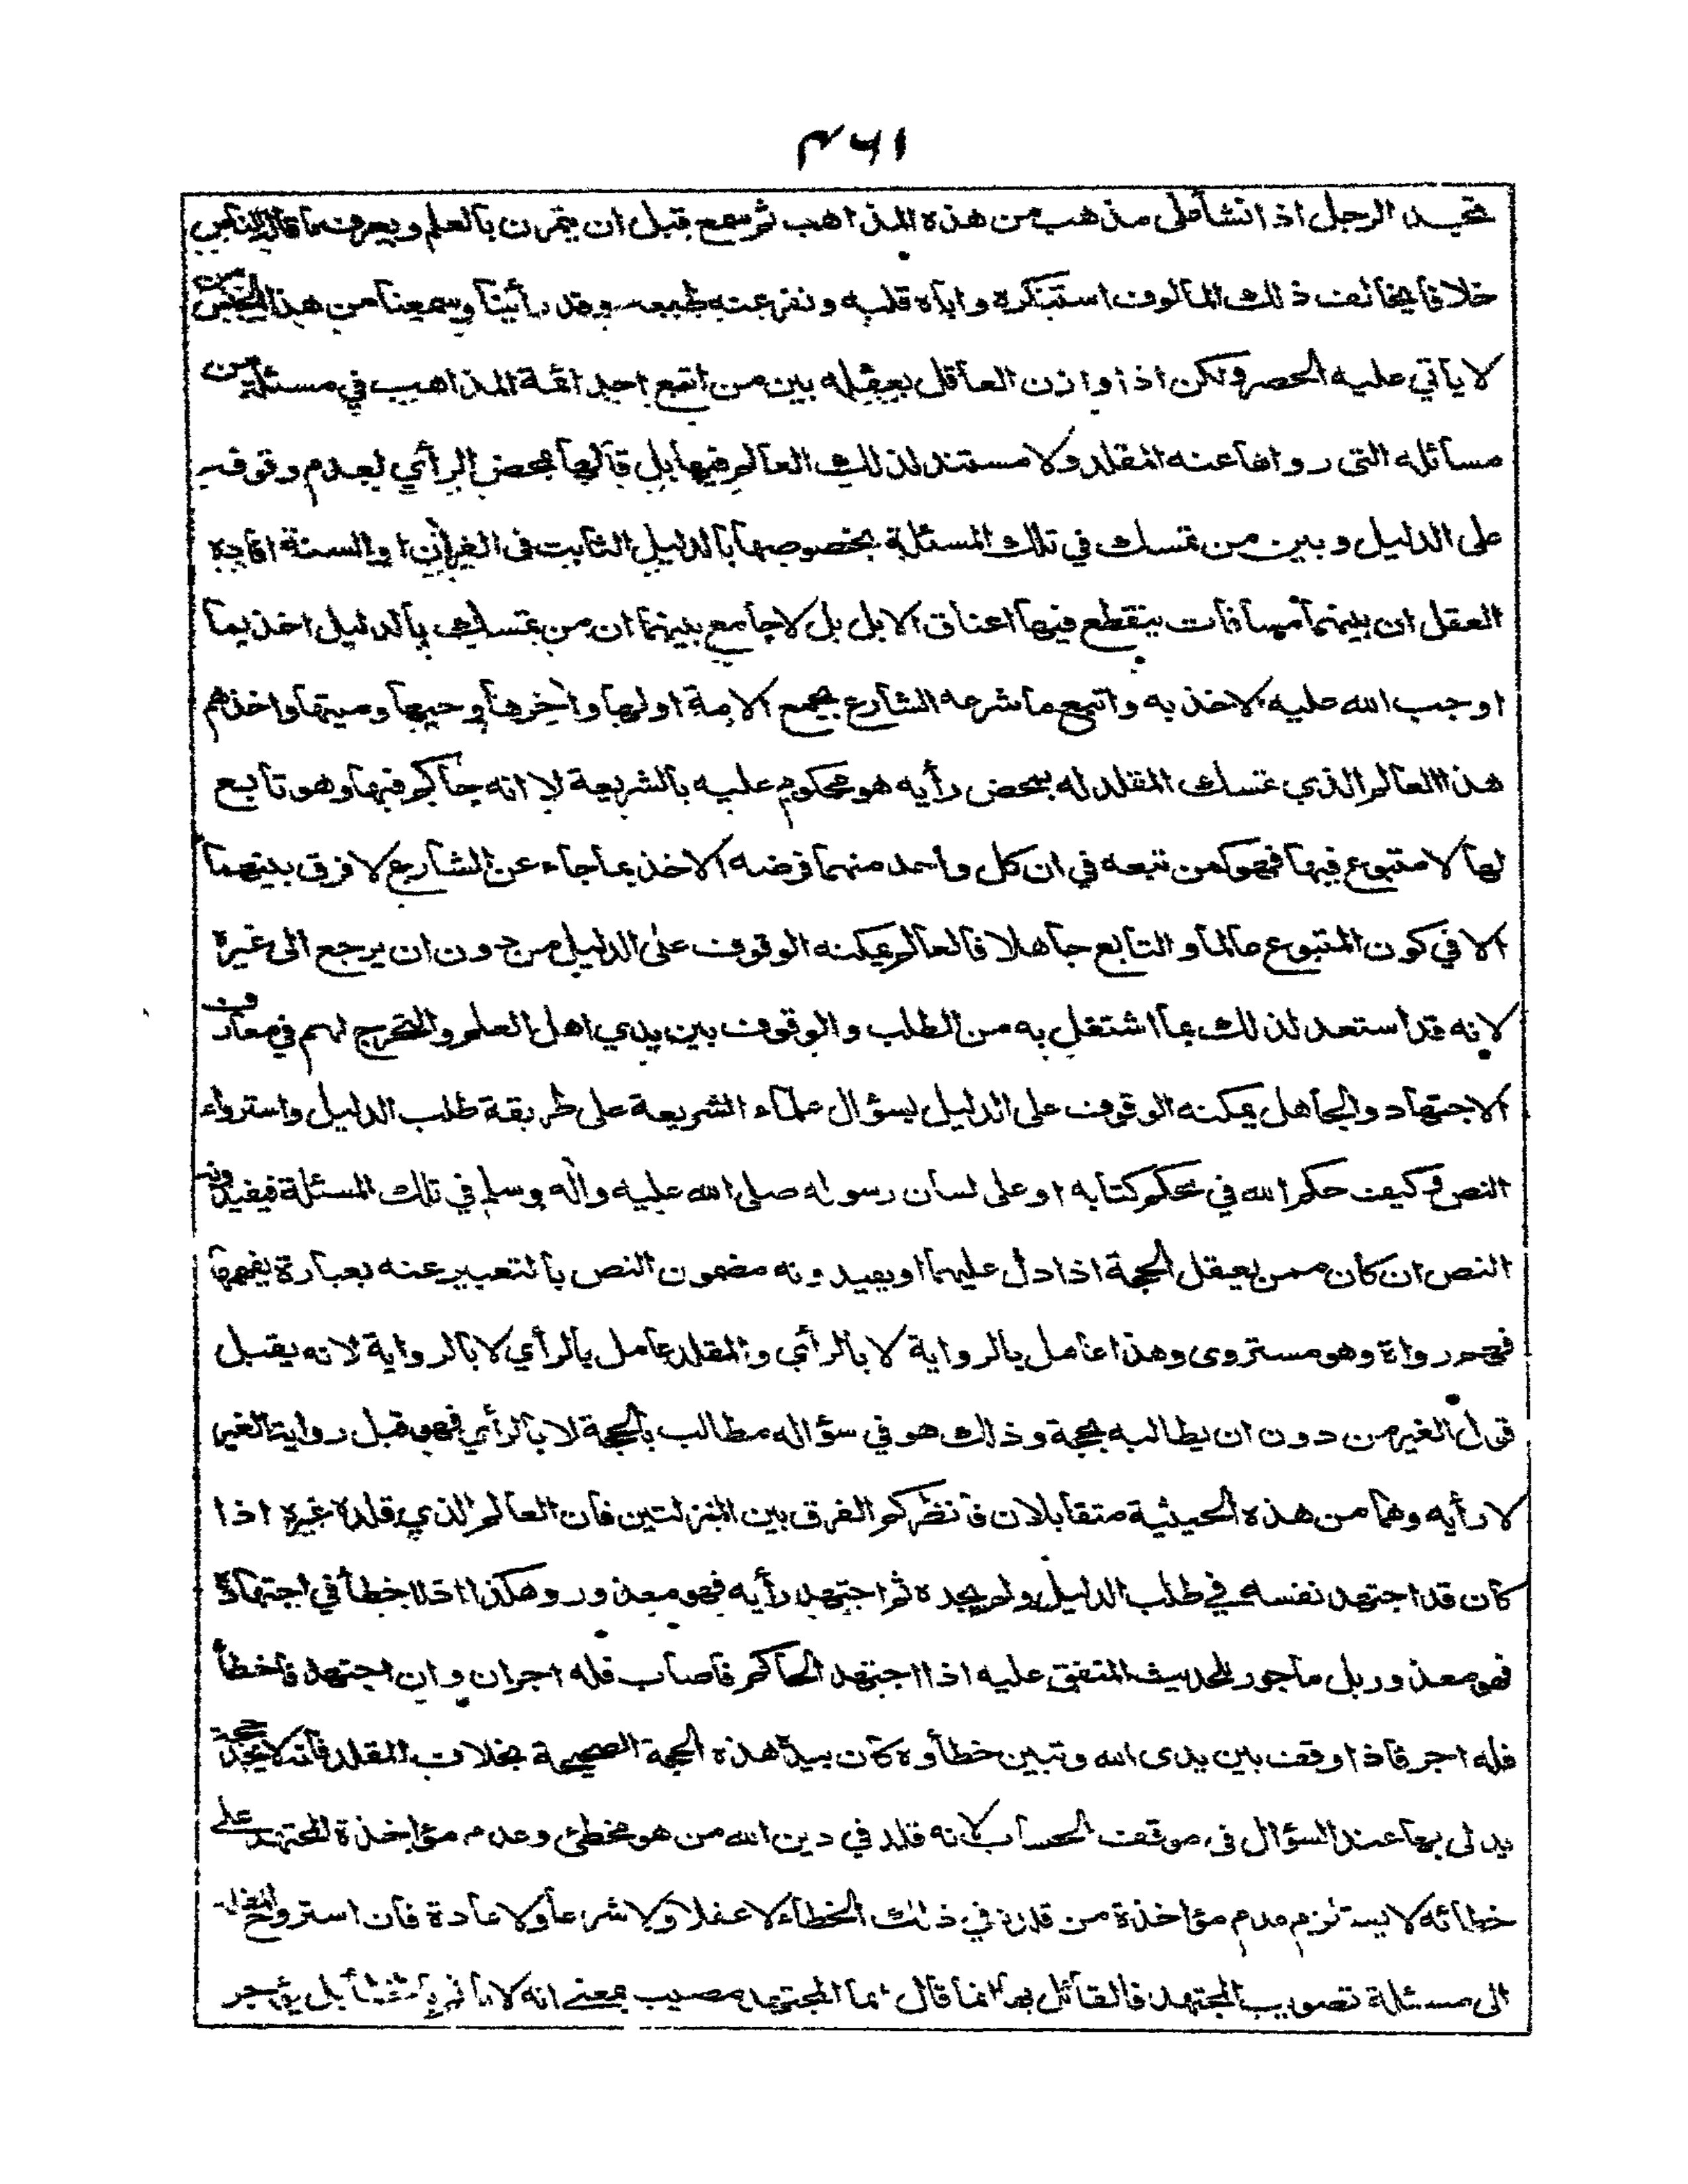 ٤٦١
فتجد الرجل اذا نشأ على مذهب من هذه المذاهب ثم سمع قبل ان يتمرن بالعلم ويعرف ما قاله الناس
خلافا يخالف ذلك المالوف استنكره واباه قلبه ونفر عنه طبعه وقد رأينا وسمعنا من هذا الجنس من
لا يأتي عليه الحصر ولكن اذا وازن العاقل بعقله بين من اتبع احد ائمة المذاهب في مسئلة من
مسائله التى رواها عنه المقلد ولا مستند لذلك العالم فيها بل قالها بمحض الرأي لعدم وقوفه
على الدليل وبين من تمسك في تلك المسئلة بخصوصها بالدليل الثابت فى القرآن او السنة افاده
العقل ان بينهما مسافات ينقطع فيها اعناق الابل بل لا جامع بينهما ان من تمسك بالدليل اخذ بما
اوجب الله عليه الاخذ به واتبع ما شرعه الشارع بجميع الامة اولها وآخرها وحيها وميتها واخذهم
هذا العالم الذي تمسك المقلد له بمحض رأيه هو محكوم عليه بالشريعة لا انه حاكم فيها وهو تابع
لها لا متبوع فيها فهو كمن تبعه في ان كل واحد منهما فرضه الاخذ بما جاء عن الشارع لا فرق بينهما
الا في كون المتبوع عالما و التابع جاهلا فالعالم يمكنه الوقوف على الدليل من دون ان يرجع الى غيره
لانه قد استعد لذلك بما اشتغل به من الطلب والوقوف بين يدي اهل العلم والتخرج لهم في معارف
الاجتهاد والجاهل يمكنه الوقوف على الدليل بسؤال علماء الشريعة على طريقة طلب الدليل واسترواء
النص وكيف حكم الله في محكم كتابه او على لسان رسوله صلى الله عليه وآله وسلم في تلك المسئلة فيفيدونه
النص ان كان ممن يعقل الحجة اذا دل عليها او يفيدونه مضمون النص بالتعبير عنه بعبارة يفهمها
فهم رواة وهو مستروى وهذا عامل بالرواية لا بالرأي والمقلد عامل بالرأي لا بالرواية لانه يقبل
قول الغير من دون ان يطالبه بحجة وذلك هو في سؤاله مطالب بالحجة لا بالرأي فهو قبل رواية الغير
لا رأيه وهما من هذه الحيثية متقابلان فانظر كم الفرق بين المنزلتين فان العالم الذي قلده غيره اذا
كان قد اجتهد نفسه في طلب الدليل ولم يجده ثم اجتهد رأيه فهو معذور وهكذا اذا اخطأ في اجتهاده
فهو معذور بل ماجور للحديث المتفق عليه اذا اجتهد الحاكم فاصاب فله اجران وان اجتهد فاخطأ
فله اجر فاذا وقف بين يدى الله وتبين خطأوه كان بيده هذه الحجة الصحيحة بخلاف المقلد فانه لا يجد حجة
يدلى بها عند السؤال فى موقف الحساب لانه قلد في دين الله من هو مخطئ وعدم مؤاخذة المجتهد على
خطائه لا يستلزم عدم مؤاخذة من قلده في ذلك الخطاء لا عقلا ولا شرعا ولا عادة فان استروح المقلد
الى مسئلة تصويب المجتهد فالقائل بها انما قال انما المجتهد مصيب بمعنى انه لا ياثم بالخطأ بل يؤجر